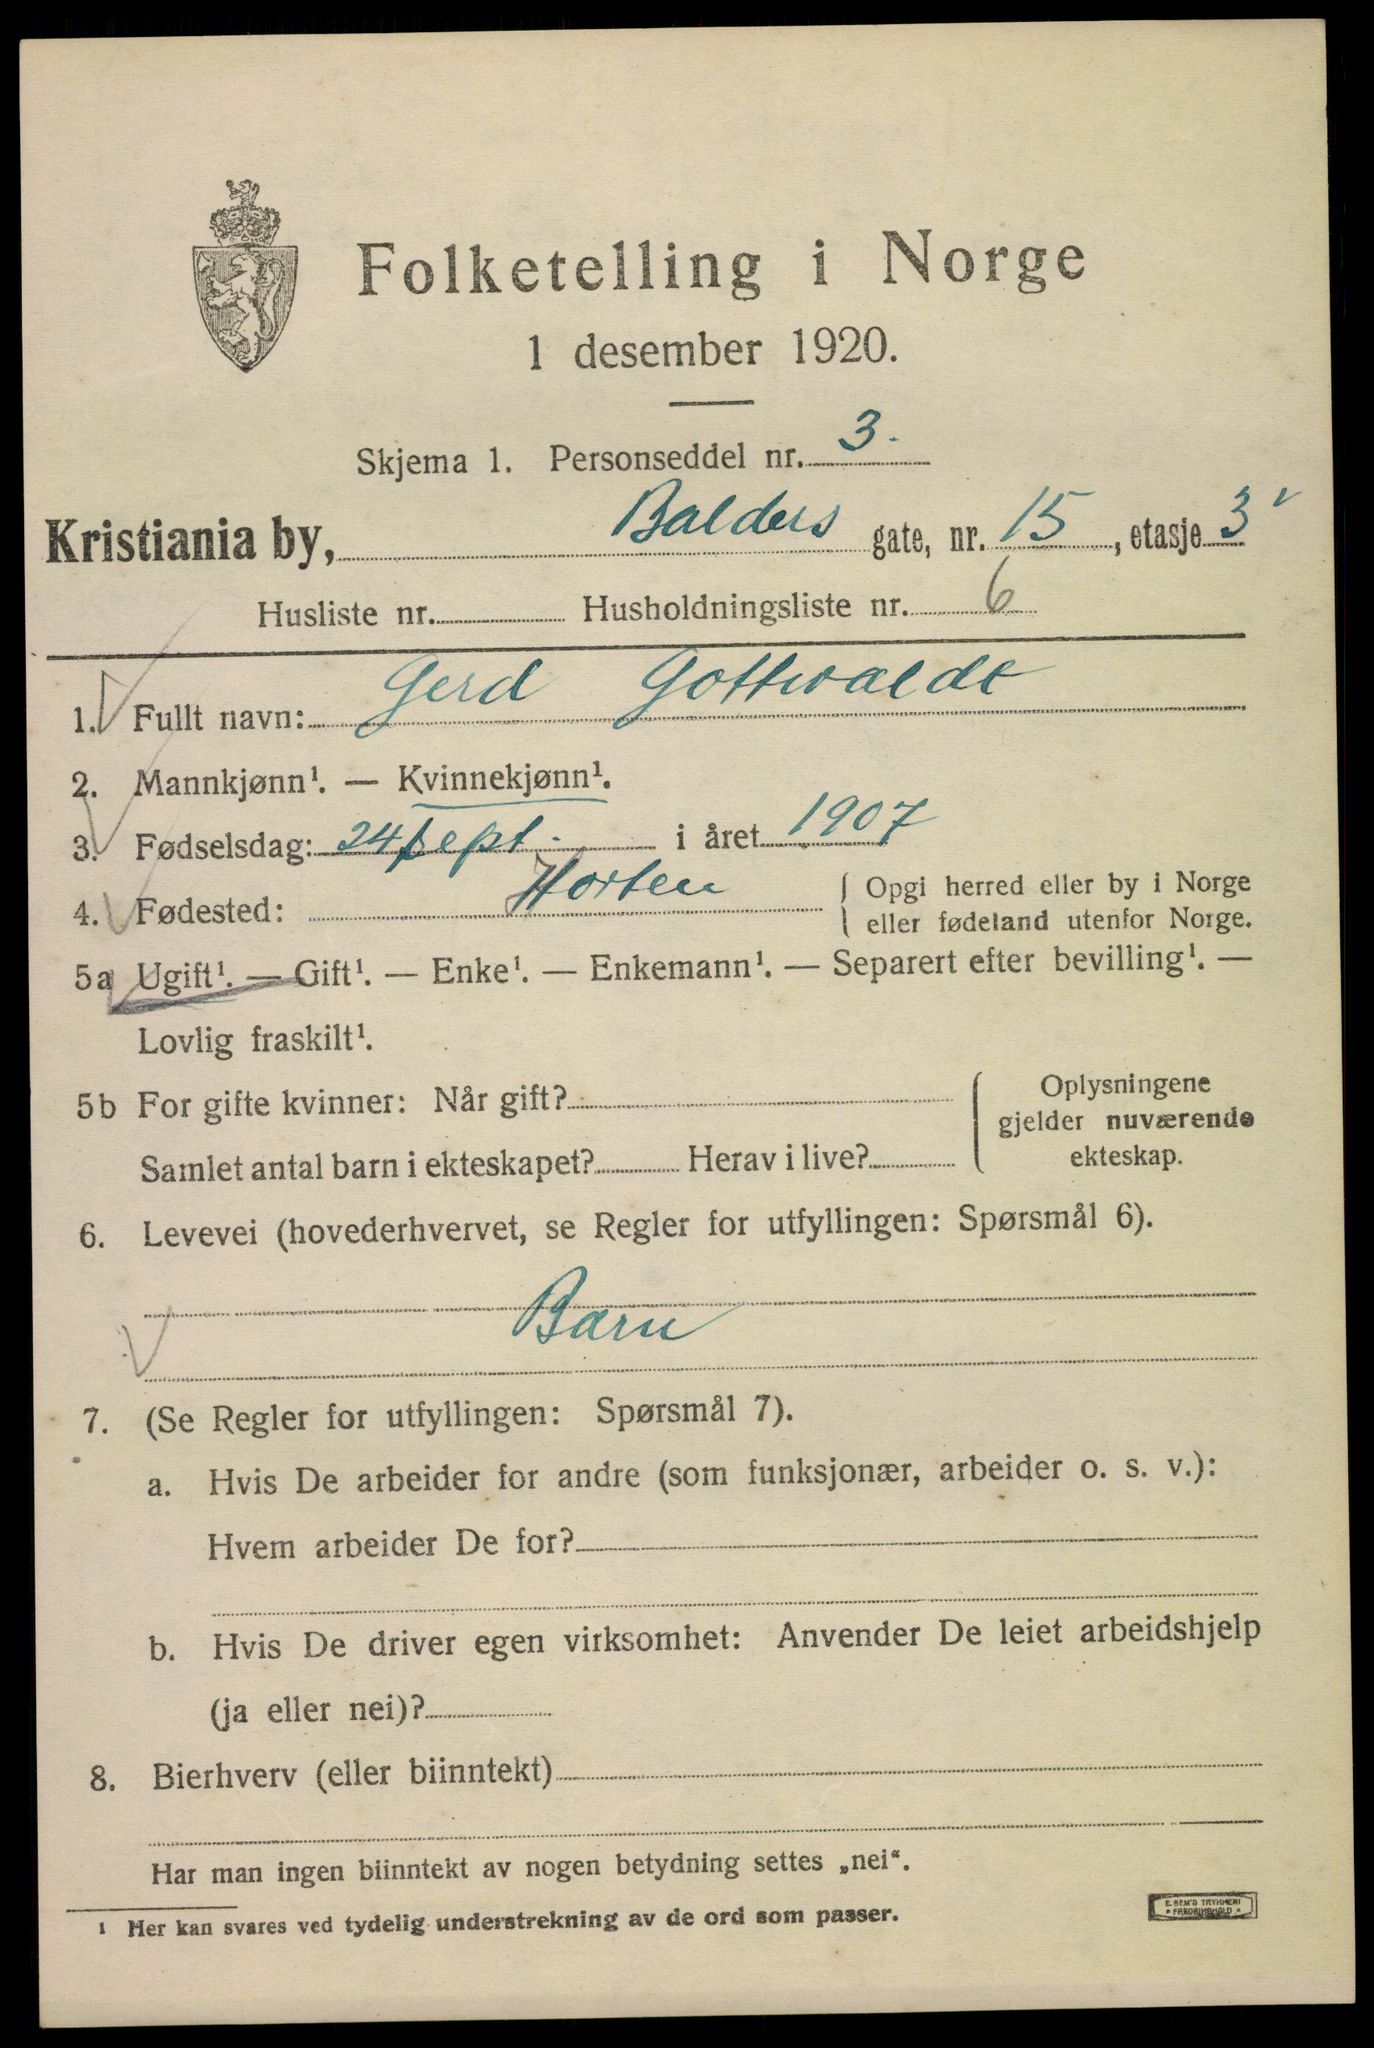 Folketelling i Norge
1 desember 1920.
Skjema 1. Personseddel nr. 3.
Kristiania by, Balders gate, nr. 15, etasje 3
Husliste nr. Husholdningsliste nr. 6
1. Fullt navn: Gerd Gottwaldt
2. Mannkjønn¹. — Kvinnekjønn¹.
3. Fødselsdag: 24 sept. i året 1907
4. Fødested: Horten { Opgi herred eller by i Norge
eller fødeland utenfor Norge.
5a Ugift¹. — Gift¹. — Enke¹. — Enkemann¹. — Separert efter bevilling¹. —
Lovlig fraskilt¹.
5b For gifte kvinner: Når gift?
Samlet antal barn i ekteskapet? Herav i live?
{ Oplysningene
gjelder nuværende
ekteskap.
6. Levevei (hovederhvervet, se Regler for utfyllingen: Spørsmål 6).
Barn
7. (Se Regler for utfyllingen: Spørsmål 7).
a. Hvis De arbeider for andre (som funksjonær, arbeider o. s. v.):
Hvem arbeider De for?
b. Hvis De driver egen virksomhet: Anvender De leiet arbeidshjelp
(ja eller nei)?
8. Bierhverv (eller biinntekt)
Har man ingen biinntekt av nogen betydning settes „nei“.
¹ Her kan svares ved tydelig understrekning av de ord som passer.
E. SEM'S TRYKKERI
• FREDRIKSHALD •